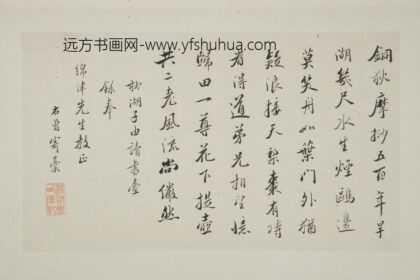 远方书画网-www.yfshuhua.com
銅狄摩挲五百年旱
湖幾尺水生煙鷗邊
莫笑舟如葉門外猶
疑浪接天梨棗有時
看得道弟兄相望憶
歸田一尊花下提壺
共二老風流尚儼然
秋湖子由讀書臺
錄奉
綿津先生教正
右曾寄藁